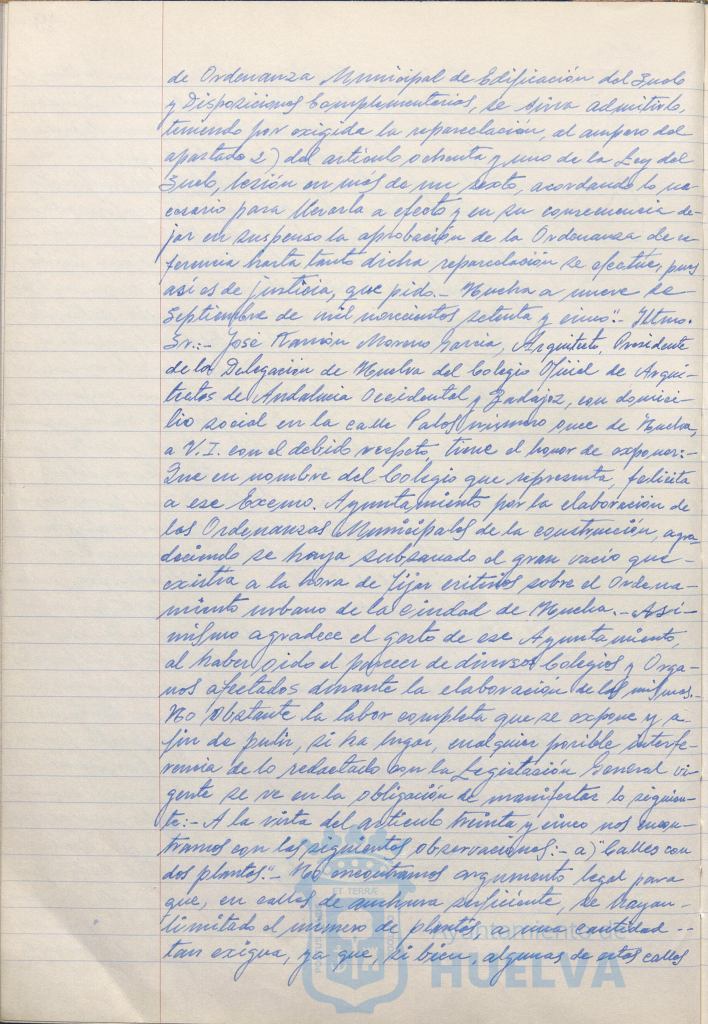 de Ordenanza Municipal de Edificación del Suelo
y Disposiciones Complementarias, se sirva admitirlo,
teniendo por exigida la reparcelación, al amparo del
apartado 2) del artículo ochenta y uno de la Ley del
Suelo, lesión en más de un sexto, acordando lo ne-
cesario para llevarla a efecto y en su consecuencia de-
jar en suspenso la aprobación de la Ordenanza de re-
ferencia hasta tanto dicha reparcelación se efectúe, pues
así es de justicia, que pido.- Huelva a nueve de
Septiembre de mil novecientos setenta y cinco".- Iltmo.
Sr.:- José Ramón Moreno García, Arquitecto, Presidente
de la Delegación de Huelva del Colegio Oficial de Arqui-
tectos de Andalucia Occidental y Badajoz, con domici-
lio social en la calle Palos número once de Huelva,
a V.I. con el debido respeto, tiene el honor de exponer:-
Que en nombre del Colegio que representa, felicita
a ese Excmo. Ayuntamiento por la elaboración de
las Ordenanzas Municipales de la construcción, agra-
deciendo se haya subsanado el gran vacío que
existía a la hora de fijar criterios sobre el Ordena-
miento urbano de la ciudad de Huelva.- Asi-
mismo agradece el gesto de ese Ayuntamiento,
al haber oido el parecer de diversos Colegios y Orga-
nos afectados durante la elaboración de las mismas.-
No obstante la labor completa que se expone y a
fin de pulir, si ha lugar, cualquier posible interfe-
rencia de lo redactado con la Legislación General vi-
gente se ve en la obligación de manifestar lo siguien-
te:- A la vista del artículo treinta y cinco nos encon-
tramos con las siguientes observaciones:- a) "Calles con
dos plantas".- No encontramos argumento legal para
que, en calles de anchura suficiente, se hayan
limitado el número de plantas, a una cantidad --
tan exigua, ya que, si bien, algunas de estas calles
ET TERRÆ
Ayuntamiento de
HUELVA